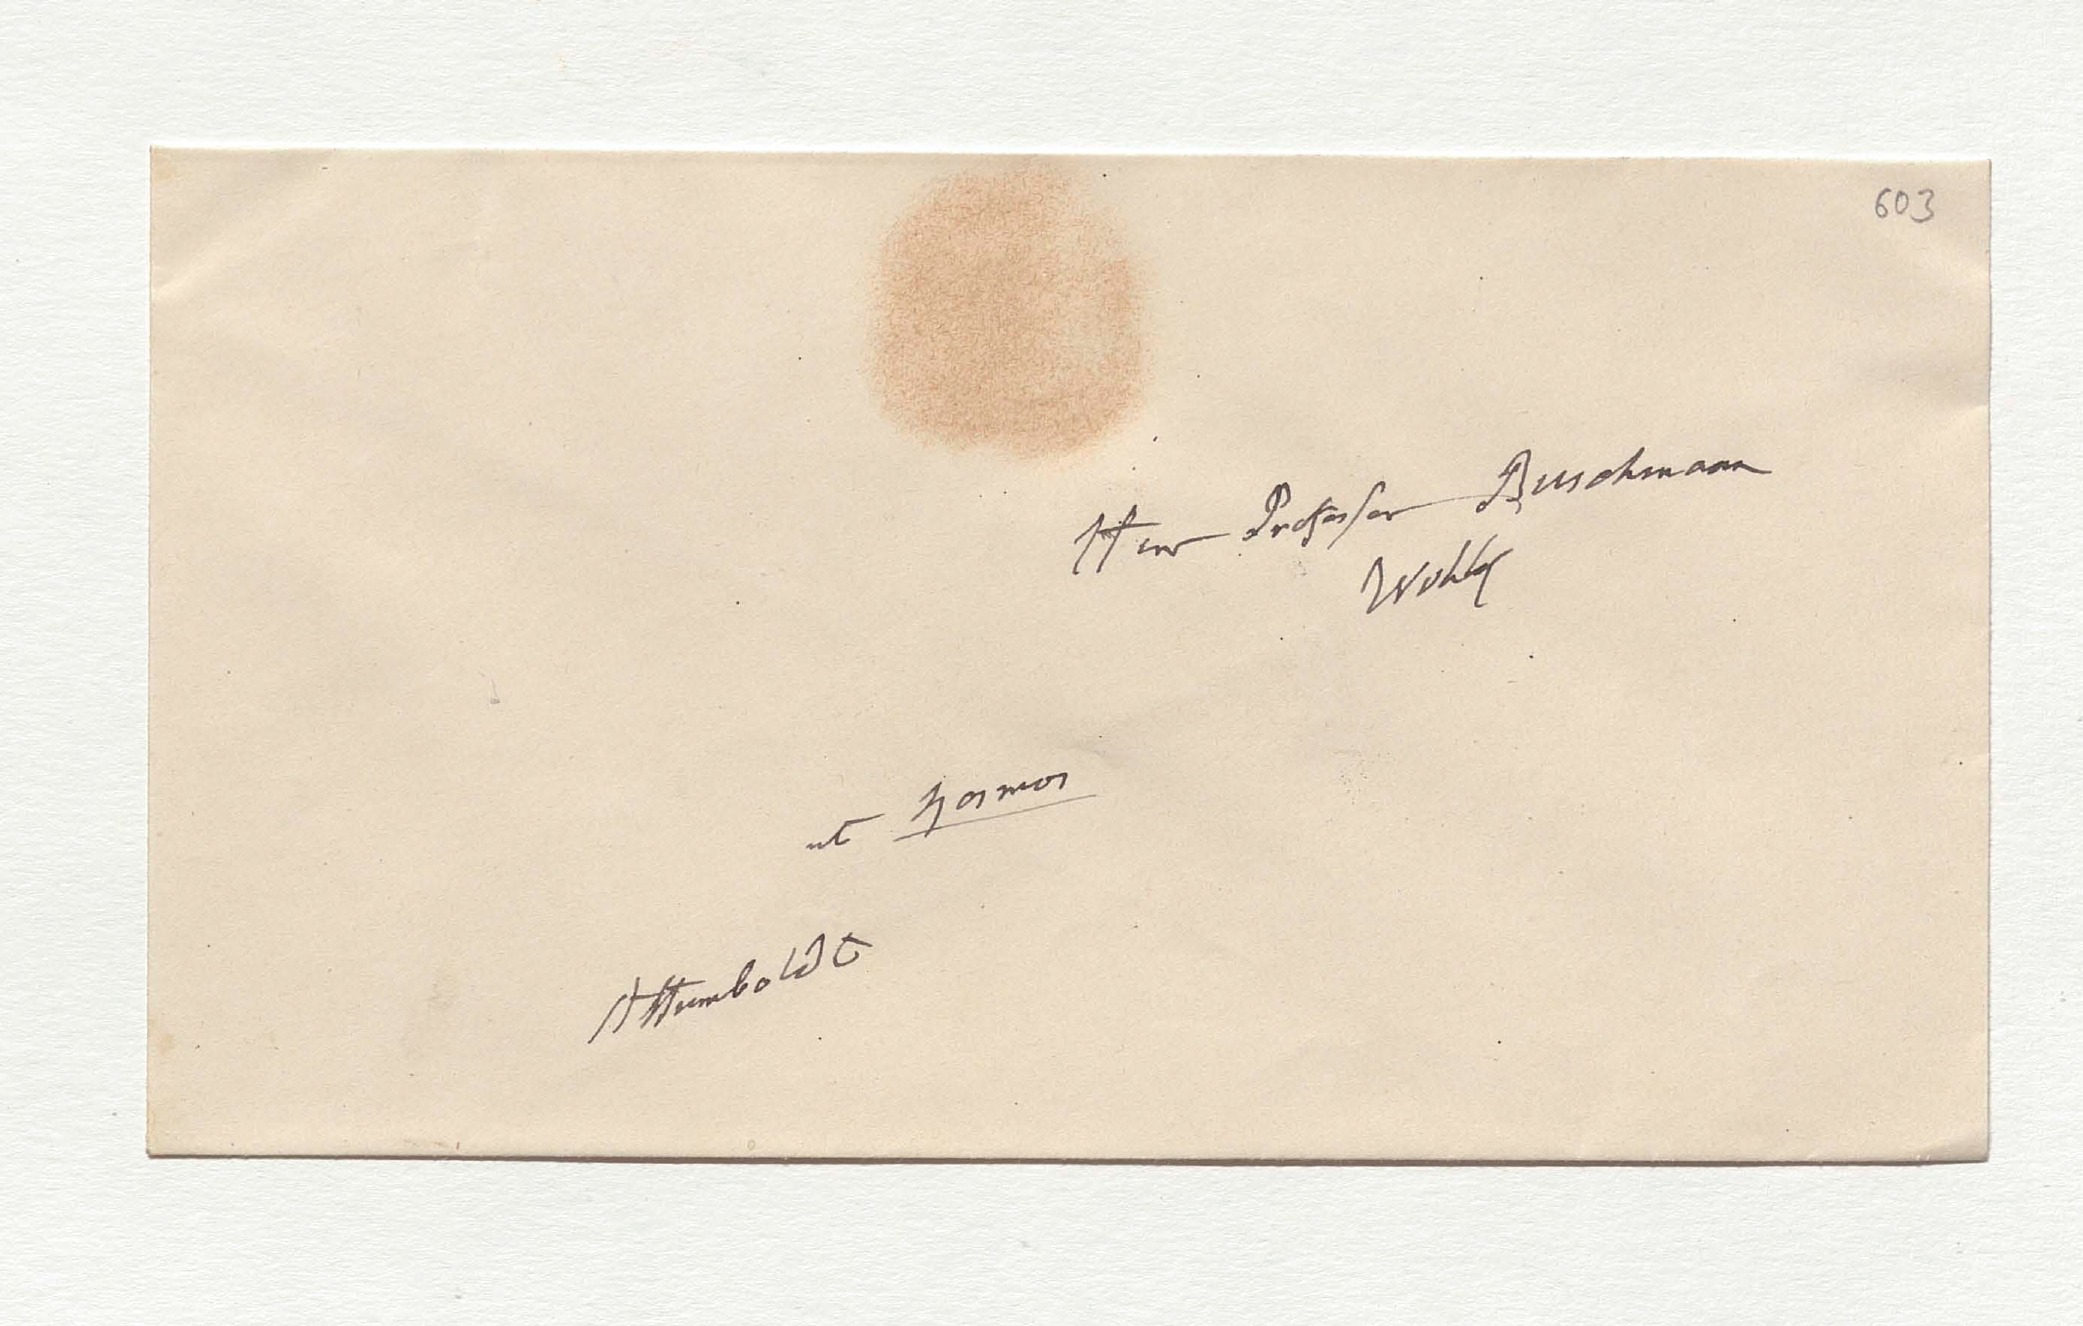 603
Herrn Professor Buschmann
Wohlg
mit Kosmos
AHumboldt